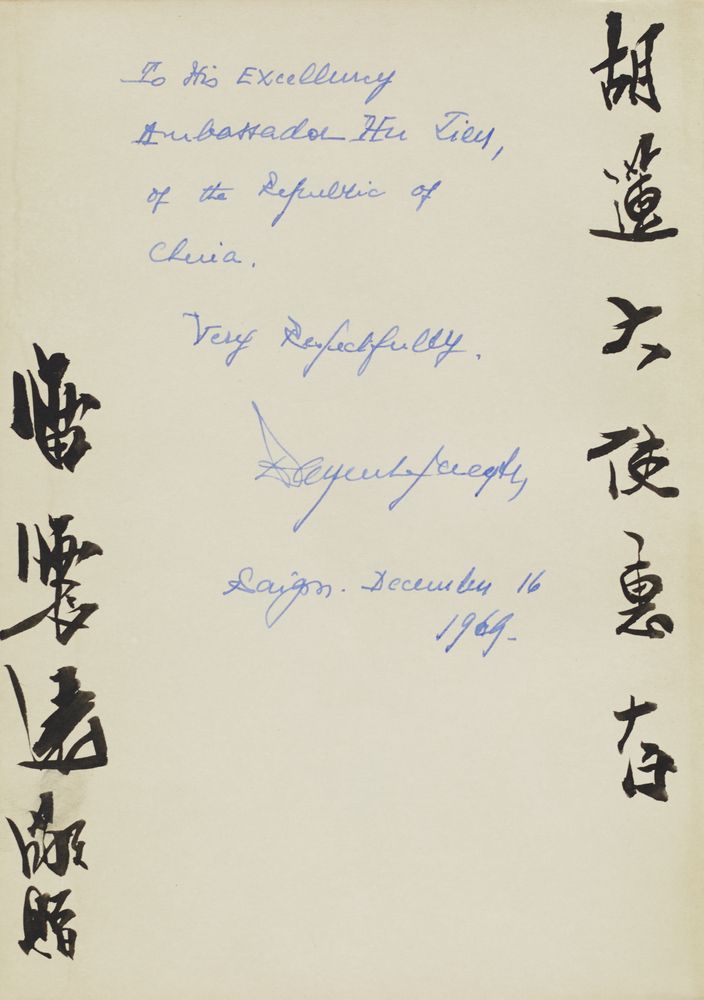 胡蓮大使惠存
To His Excellency
Ambassador Hu Lien,
of the Republic of
China.
Very Respectfully.
Raymond de Jaegher
Saigon. December 16
1969.
雷震遠敬贈